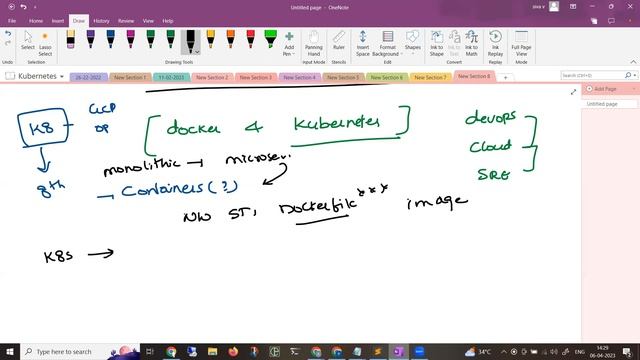 Untitled page - OneNote
siva v
File Home Insert Draw History Review View Help
Undo Redo
Select Lasso Select
Eraser
Add Pen
Panning Hand
Ruler
Insert Space
Format Background
Shapes
Ink to Shape
Ink to Text
Ink to Math
Full Page View
Drawing Tools
Input Modes
Kubernetes
26-22-2022
New Section 1
11-02-2023
New Section 2
New Section 3
New Section 4
New Section 5
New Section 6
New Section 7
New Section 8
Search (Ctrl+E)
Add Page
Untitled page
K8
GCP
OP
[docker & Kubernetes]
devops
Cloud
SRE
monolithic → microser.
8th
→ Containers(?)
NW ST, Dockerfile*** image
K8s →
Type here to search
34°C
ENG
14:29
06-04-2023